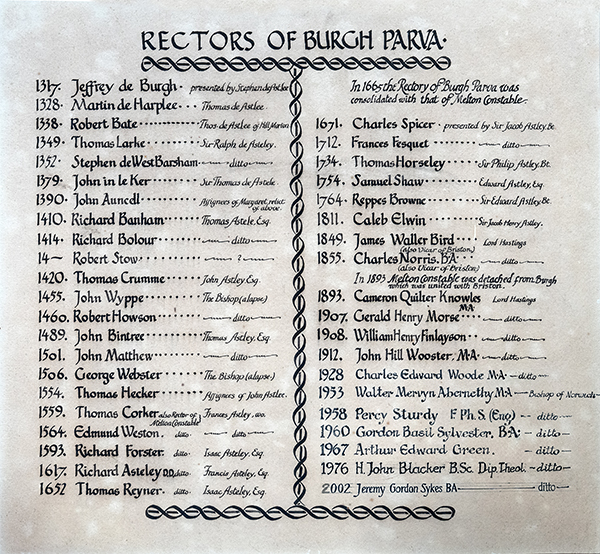 RECTORS OF BURGH PARVA.
1317. Jeffrey de Burgh. presented by Stephen de Astlee
1328. Martin de Harplee... Thomas de Astlee.
1338. Robert Bate....... Thos. de Astlee of Hill Morton
1349. Thomas Larke...... Sir Ralph de Asteley.
1352. Stephen de West Barsham. —ditto—
1379. John in le Ker...... Sir Thomas de Astele
1390. John Aunedl...... Assignees of Margaret, relict of above.
1410. Richard Banham........ Thomas Astele, Esq.
1414. Richard Bolour....... —ditto—
14— Robert Stow........ — ? —
1420. Thomas Crumme...... John Astley Esq.
1455. John Wyppe....... The Bishop (a lapse)
1460. Robert Howson...... —ditto—
1489. John Bintree....... Thomas Astley, Esq.
1501. John Matthew....... —ditto—
1506. George Webster....... The Bishop (a lapse)
1554. Thomas Hecker....... Assignees of John Astlee.
1559. Thomas Corker also Rector of Melton Constable Frances Astley,
1564. Edmund Weston. ditto —ditto—
1593. Richard Forster. ditto Isaac Asteley, Esq.
1617. Richard Asteley D.D. ditto Francis Asteley, Esq.
1652 Thomas Reyner. ditto Isaac Asteley, Esq.
In 1665 the Rectory of Burgh Parva was
consolidated with that of Melton Constable.
1671. Charles Spicer. presented by Sir Jacob Astley, Bt.
1712. Frances Fesquet..... —ditto—
1734. Thomas Horseley...... Sir Philip Astley, Bt.
1754. Samuel Shaw........ Edward Astley, Esq.
1764. Reppes Browne...... Sir Edward Astley, Bt.
1811. Caleb Elwin......... Sir Jacob Henry Astley.
1849. James Waller Bird.... Lord Hastings
(also Vicar of Briston)
1855. Charles Norris. B.A..... —ditto—
(also Vicar of Briston)
In 1893 Melton Constable was detached from Burgh
which was united with Briston.
1893. Cameron Quilter Knowles M.A Lord Hastings
1907. Gerald Henry Morse.... —ditto—
1908. William Henry Finlayson.. —ditto—
1912. John Hill Wooster, M.A. —ditto—
1928 Charles Edward Woode M.A —ditto—
1953 Walter Mervyn Abernethy M.A —Bishop of Norwich—
1958 Percy Sturdy F Ph. S. (Eng) - ditto—
1960 Gordon Basil Sylvester, B.A. - ditto—
1967 Arthur Edward Green. - ditto—
1976 H. John Blacker B.Sc. Dip. Theol. - ditto—
2002 Jeremy Gordon Sykes BA ——— ditto—